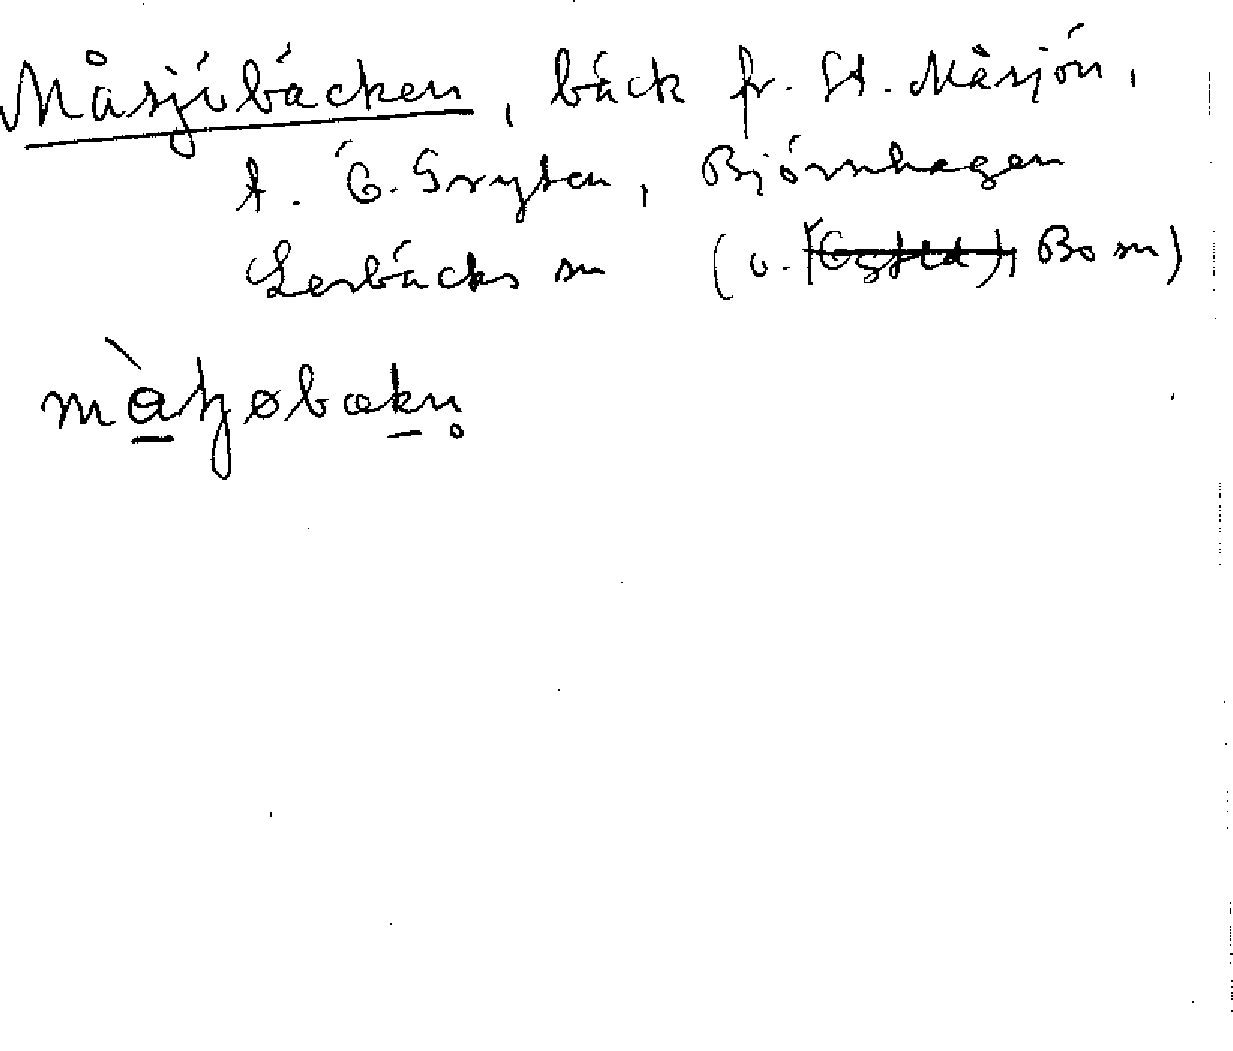 Måsjöbäcken, bäck fr. St. Måsjön,
t. Ö. Gryten, Björnhagen
Lerbäcks sn (o. Bo sn)